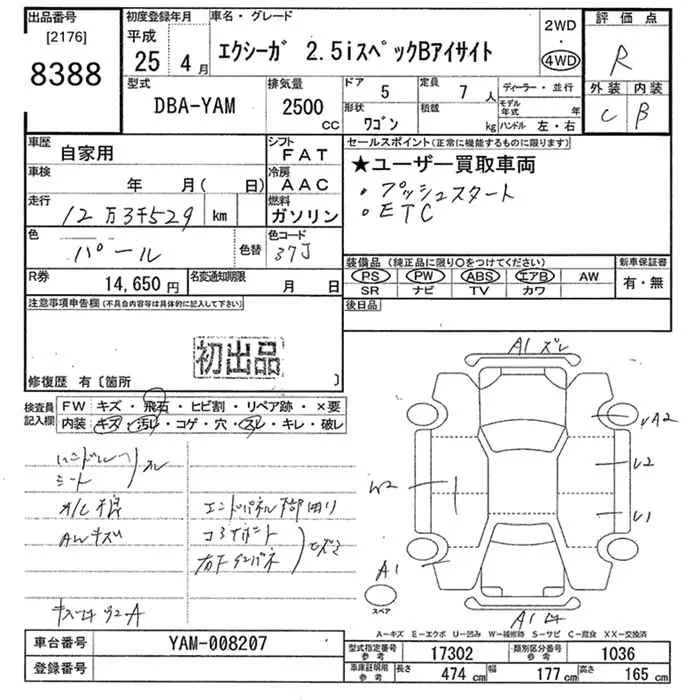 出品番号
[2176]
8388
初度登録年月
平成
25 4月
車名・グレード
エクシーガ 2.5iスペックBアイサイト
2WD
・
4WD
評価点
R
外装 内装
C B
型式
DBA-YAM
排気量
2500
CC
ドア 5
定員 7人
形状 ワゴン
積載 kg
ディーラー・並行
モデル年式 年
ハンドル 左・右
車歴
自家用
シフト
FAT
車検
年 月( 日)
冷房
AAC
走行
12万3千529 km
燃料
ガソリン
色
パール
色替
色コード
37J
R券
14,650円
名変通知期限
月 日
セールスポイント(正常に機能するものに限ります)
★ユーザー買取車両
・プッシュスタート
・ETC
装備品(純正品に限り○をつけてください)
PS PW ABS エアB AW
SR ナビ TV カワ
新車保証書
有・無
後日品
注意事項申告欄(不具合内容等は具体的に記入して下さい)
初出品
修復歴 有〔箇所 〕
検査員記入欄
FW キズ・飛石・ヒビ割・リペア跡・×要
内装 キズ・汚レ・コゲ・穴・スレ・キレ・破レ
ハンドル
シート
スレ
AWキズ
エンドパネル
コアサポート
A1ズレ
UA2
U2
U1
W2
A1
スペア
A14
A-キズ E-エクボ U-凹み W-補修跡 S-サビ C-腐食 XX-交換済
車台番号
YAM-008207
登録番号
型式指定番号
参考
17302
類別区分番号
参考
1036
車庫証明用
参考
長さ 474cm
幅 177cm
高さ 165cm